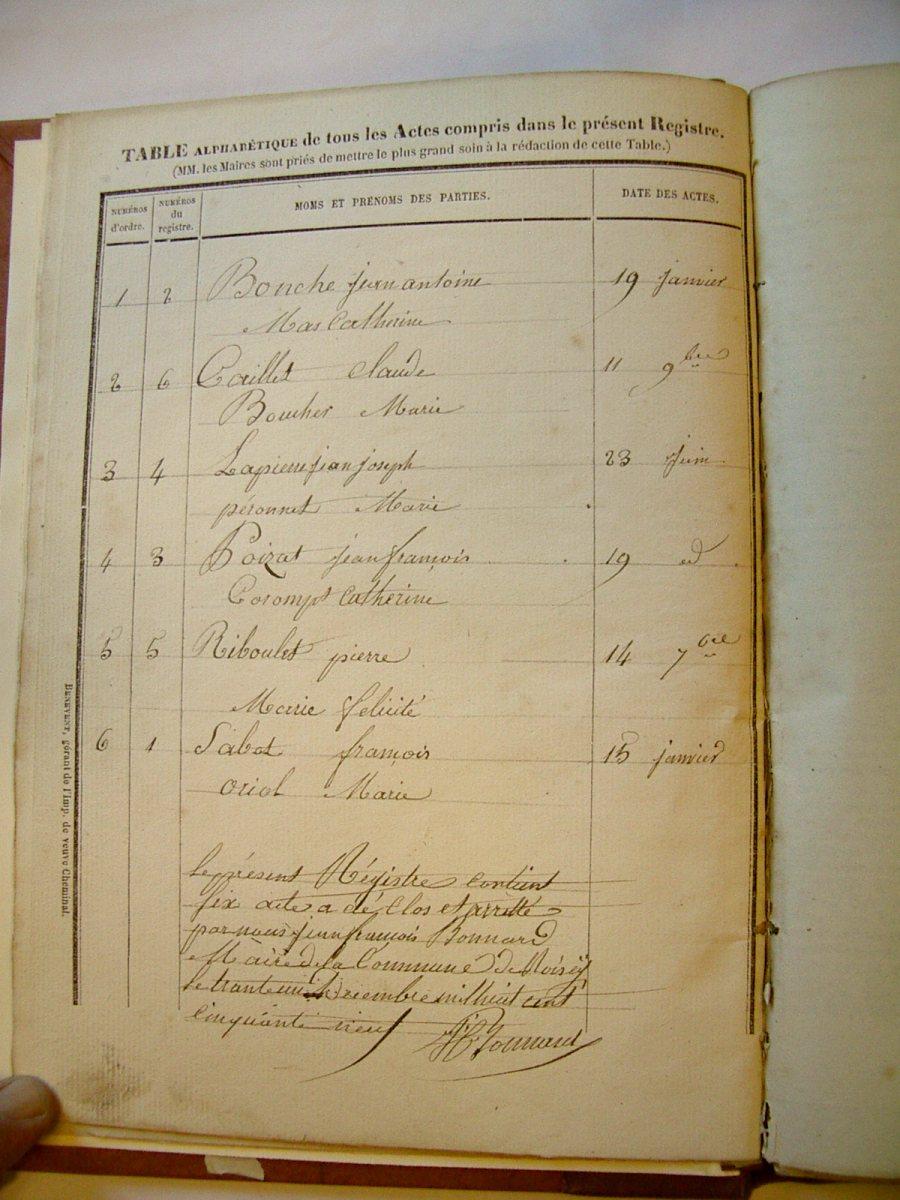 TABLE ALPHABÉTIQUE de tous les Actes compris dans le présent Registre.
(MM. les Maires sont priés de mettre le plus grand soin à la rédaction de cette Table.)
NUMÉROS d'ordre. NUMÉROS du registre. NOMS ET PRÉNOMS DES PARTIES. DATE DES ACTES.
1 2 Bonche jean antoine 19 janvier
Mas Catherine
2 6 Caillet Claude 11 9bre
Boucher Marie
3 4 Lapierre jean joseph 23 juin
péronnet Marie
4 3 Poizat jean françois 19 id
Corompt Catherine
5 5 Riboulet pierre 14 7bre
Marie felicité
6 1 Sabot françois 15 janvier
oriol Marie
le présent Régistre contient
six acte a dé Clos et arretté
par nous jean françois Bonnard
Maire de la Commune de Roisey
le trante un Dzcembre mil huit cent
cinquante neuf Bonnard
BENEVENT, gérant de l'Imp. de veuve Cheminal.